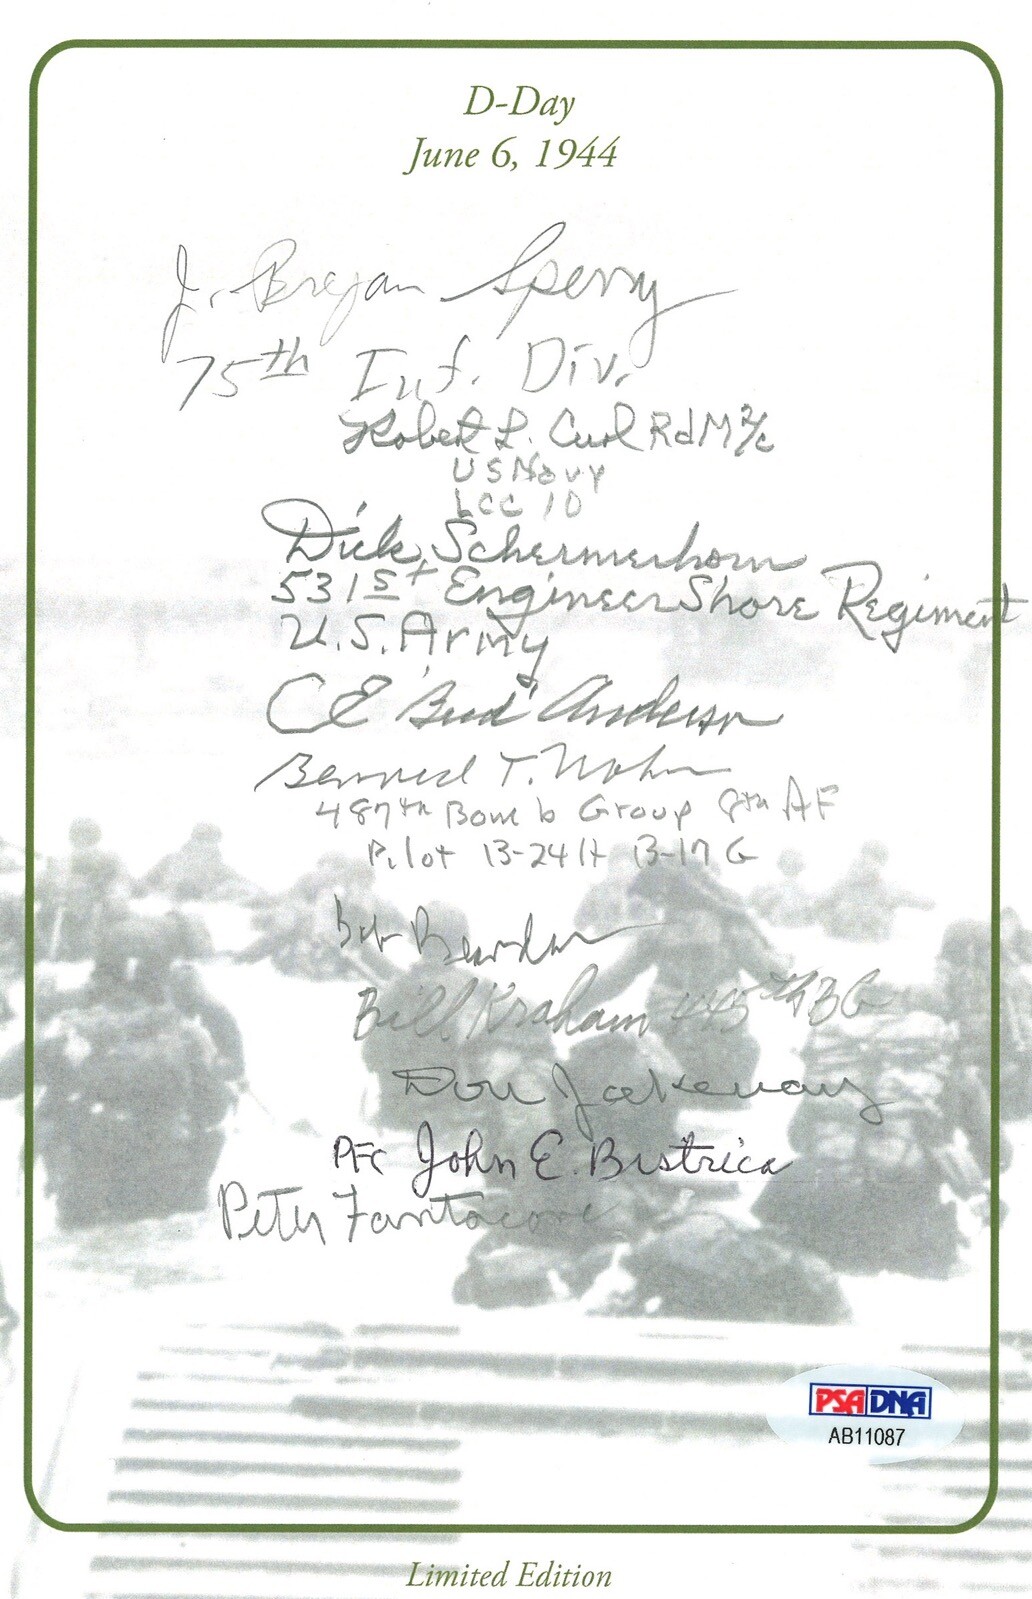 D-Day
June 6, 1944
J. Bryan Sperry
75th Inf. Div.
Robert L. Curl RdM 2/c
US Navy
LCC 10
Dick Schermerhorn
531st Engineer Shore Regiment
U.S. Army
CE "Bud" Anderson
T. Nohn
487th Bomb Group 8th AF
Pilot B-24H B-17G
Bob Bearden
Bill Kraham 445th BG
Don Jakeway
PFC John E. Bistrica
Peter Fantacone
PSA DNA
AB11087
Limited Edition